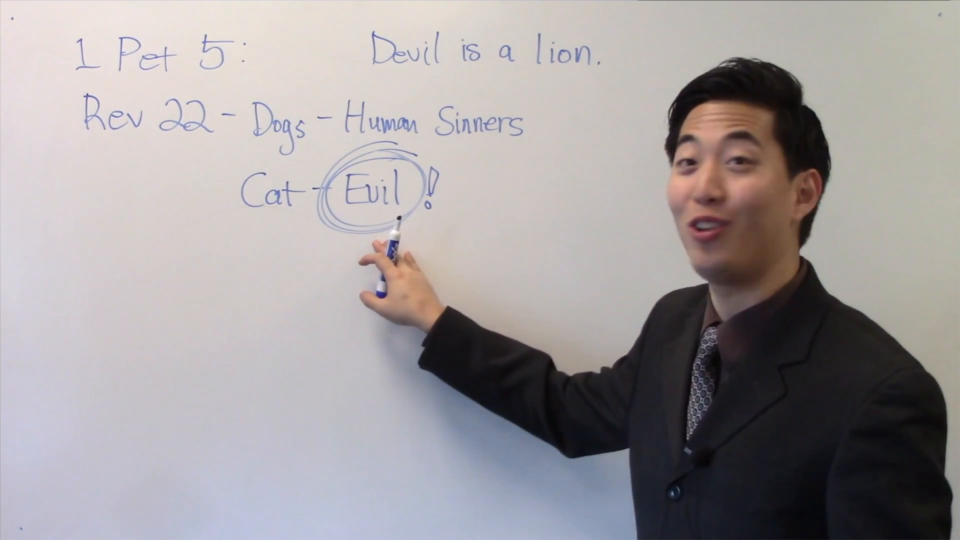 1 Pet 5: Devil is a lion.
Rev 22 - Dogs - Human Sinners
Cat - Evil!